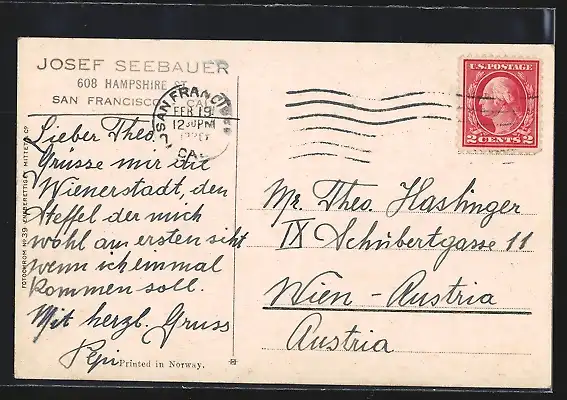 JOSEF SEEBAUER
608 HAMPSHIRE ST.
SAN FRANCISCO, CAL.
SAN FRANCISCO
FEB 19
12 30 PM
CAL.
U.S. POSTAGE
2 CENTS 2
Lieber Theo.
Grüsse mir die
Wienerstadt, den
Steffel der mich
wohl am ersten siht
wenn ich einmal
kommen soll.
Mit herzl. Gruss
Pepi
Mr. Theo. Haslinger
IX Schubertgasse 11
Wien - Austria
Austria
Printed in Norway.
FOTOCROM No 39 ENEBERETTIGET MITTET & CO